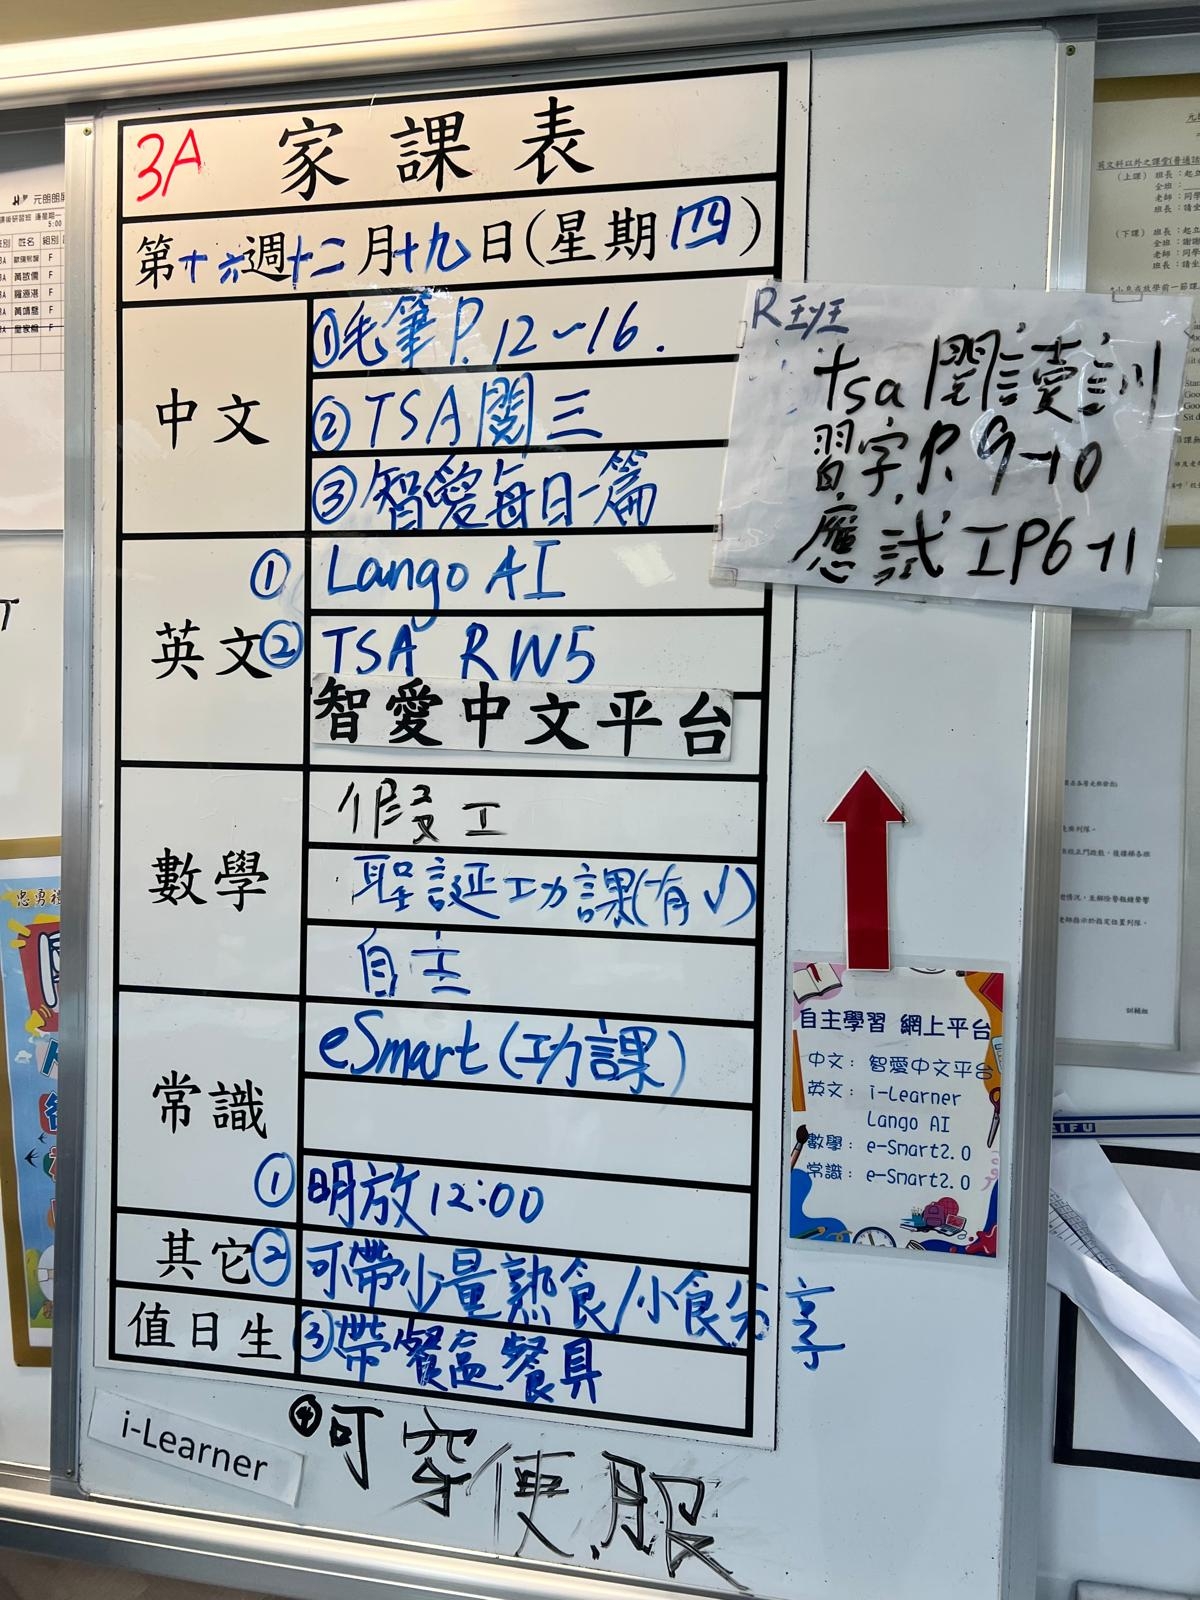 3A 家課表
第十六週十二月十九日(星期四)
中文
①毛筆P.12~16.
②TSA閱三
③智愛每日一篇
英文
① Lango AI
② TSA RW5
智愛中文平台
數學
假工
聖誕功課(有√)
自主
常識
eSmart(功課)
其它
①明放12:00
②可帶少量熟食/小食分享
值日生
③帶餐盒餐具
④可穿便服
i-Learner
R班
tsa 閱讀訓
習字P.9-10
應試工P6-11
自主學習 網上平台
中文: 智愛中文平台
英文: i-Learner
Lango AI
數學: e-Smart2.0
常識: e-Smart2.0